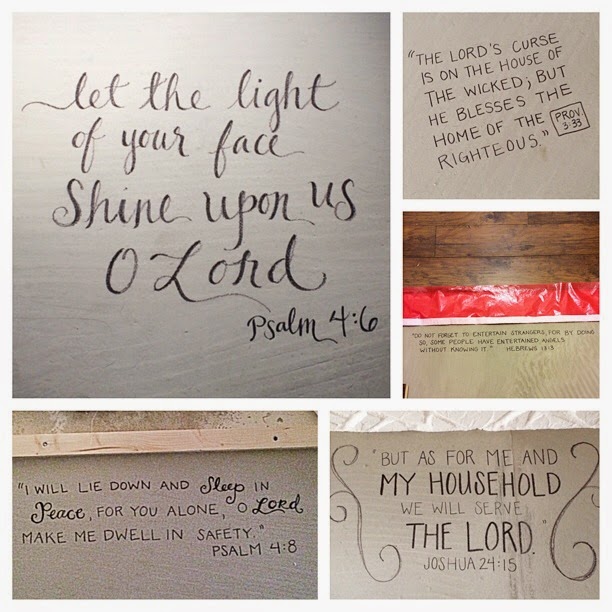 let the light
of your face
Shine upon us
O Lord
Psalm 4:6
"THE LORD'S CURSE
IS ON THE HOUSE OF
THE WICKED; BUT
HE BLESSES THE
HOME OF THE
RIGHTEOUS."
PROV.
3:33
"DO NOT FORGET TO ENTERTAIN STRANGERS, FOR BY DOING
SO, SOME PEOPLE HAVE ENTERTAINED ANGELS
WITHOUT KNOWING IT." HEBREWS 13:3
"I WILL LIE DOWN AND Sleep IN
Peace, FOR YOU ALONE, O Lord
MAKE ME DWELL IN SAFETY."
PSALM 4:8
"BUT AS FOR ME AND
MY HOUSEHOLD
WE WILL SERVE
THE LORD."
JOSHUA 24:15